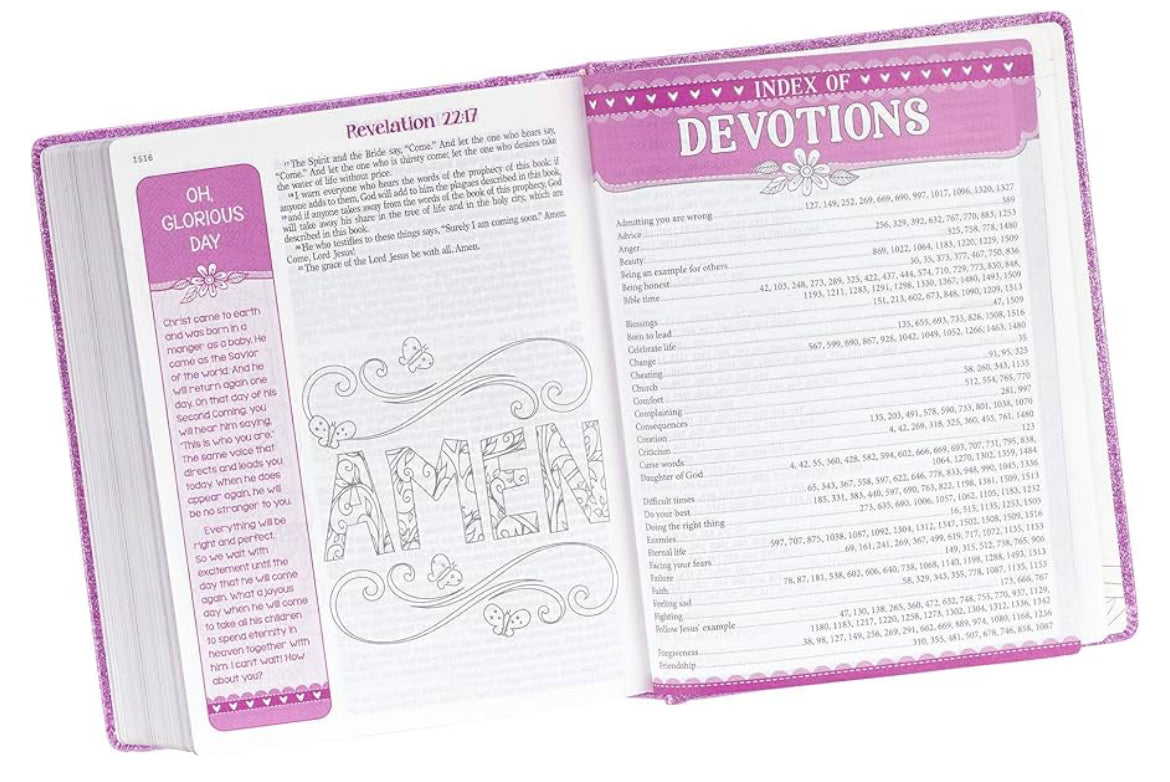 1516
Revelation 22:17
OH,
GLORIOUS
DAY
Christ came to earth
and was born in a
manger as a baby. He
came as the Savior
of the world. And he
will return again one
day. On that day of his
Second Coming, you
will hear him saying,
"This is who you are."
The same voice that
directs and leads you
today. When he does
appear again, he will
be no stranger to you.
Everything will be
right and perfect.
So we wait with
excitement until the
day that he will come
again. What a joyous
day when he will come
to take all his children
to spend eternity in
heaven together with
him. I can't wait! How
about you?
17 The Spirit and the Bride say, "Come." And let the one who hears say,
"Come." And let the one who is thirsty come; let the one who desires take
the water of life without price.
18 I warn everyone who hears the words of the prophecy of this book: if
anyone adds to them, God will add to him the plagues described in this book,
19 and if anyone takes away from the words of the book of this prophecy, God
will take away his share in the tree of life and in the holy city, which are
described in this book.
20 He who testifies to these things says, "Surely I am coming soon." Amen.
Come, Lord Jesus!
21 The grace of the Lord Jesus be with all. Amen.
AMEN
INDEX OF
DEVOTIONS
Admitting you are wrong 127, 149, 252, 269, 669, 690, 997, 1017, 1096, 1320, 1327
Advice 389
Anger 256, 329, 392, 632, 767, 770, 883, 1253
Beauty 325, 758, 778, 1480
Being an example for others 869, 1022, 1064, 1183, 1220, 1229, 1509
Being honest 30, 35, 373, 377, 467, 750, 836
Bible time 42, 103, 248, 273, 289, 325, 422, 437, 444, 574, 710, 729, 773, 830, 848,
1193, 1211, 1283, 1291, 1298, 1330, 1367, 1480, 1493, 1509
Blessings 151, 213, 602, 673, 848, 1090, 1209, 1513
Born to lead 47, 1509
Celebrate life 135, 655, 693, 733, 826, 1508, 1516
Change 567, 599, 690, 867, 928, 1042, 1049, 1052, 1266, 1463, 1480
Cheating 35
Church 91, 95, 325
Comfort 58, 260, 343, 1135
Complaining 512, 554, 765, 770
Consequences 281, 997
Creation 135, 203, 491, 578, 590, 733, 801, 1038, 1070
Criticism 4, 42, 269, 318, 325, 360, 455, 761, 1480
Curse words 123
Daughter of God 4, 42, 55, 360, 428, 582, 594, 602, 666, 669, 693, 707, 731, 795, 838,
1064, 1270, 1302, 1359, 1484
Difficult times 65, 343, 367, 558, 597, 622, 646, 778, 833, 948, 990, 1045, 1336
Do your best 185, 331, 383, 440, 597, 690, 763, 822, 1198, 1381, 1509, 1513
Doing the right thing 273, 635, 690, 1006, 1057, 1062, 1105, 1183, 1232
Enemies 16, 515, 1135, 1253, 1505
Eternal life 597, 707, 875, 1038, 1087, 1092, 1304, 1312, 1347, 1502, 1508, 1509, 1516
Facing your fears 69, 161, 241, 269, 367, 499, 619, 717, 1072, 1135, 1153
Failure 149, 315, 512, 738, 765, 906
Faith 78, 87, 181, 538, 602, 606, 640, 738, 1068, 1140, 1198, 1288, 1493, 1513
Feeling sad 58, 329, 343, 355, 778, 1087, 1135, 1153
Fighting 173, 666, 767
Follow Jesus' example 47, 130, 138, 265, 360, 472, 632, 748, 755, 770, 937, 1129,
1180, 1183, 1217, 1220, 1258, 1273, 1302, 1304, 1312, 1336, 1342
Forgiveness 38, 98, 127, 149, 256, 269, 291, 662, 669, 889, 974, 1080, 1168, 1236
Friendship 310, 355, 481, 507, 678, 746, 858, 1087